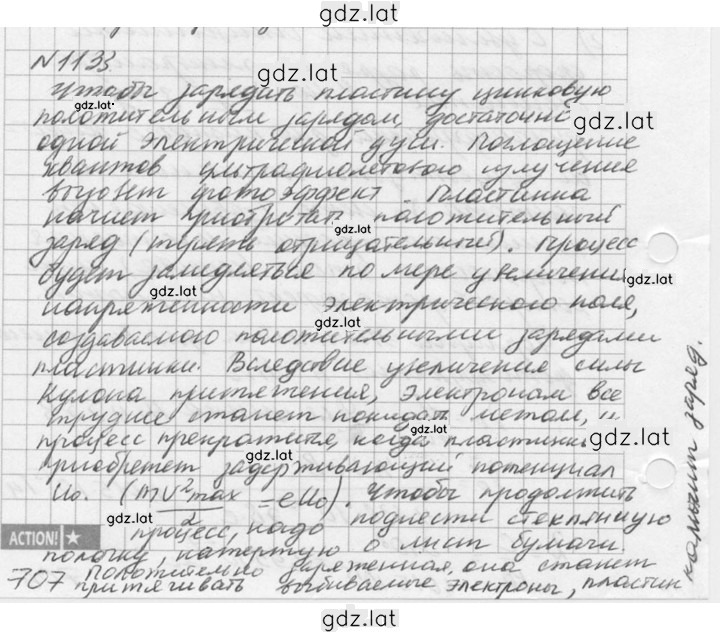 gdz.lat
N1133
gdz.lat
Чтобы зарядить пластину цинковую
gdz.lat
положительным зарядом, достаточно
gdz.lat
одной электрической дуги. Поглощение
квантов ультрафиолетового излучения
gdz.lat
вызовет фотоэффект. Пластинка
начнет приобретать положительный
gdz.lat
заряд (терять отрицательный). Процесс
gdz.lat
будет замедляться по мере увеличения
gdz.lat
напряженности электрического поля,
gdz.lat
создаваемого положительными зарядами
пластинки. Вследствие увеличения силы
Кулона притяжения, электронам все
gdz.lat
труднее станет покидать металл, и
gdz.lat
процесс прекратится, когда пластинка
gdz.lat
gdz.lat
приобретет задерживающий потенциал
U₀. (mv²max/2 = eU₀). Чтобы продолжить
gdz.lat
процесс, надо поднести стеклянную
ACTION!
палочку, натертую о лист бумаги.
707 положительно заряженная, она станет
притягивать выбиваемые электроны, пластин
gdz.lat
заряд.
gdz.lat